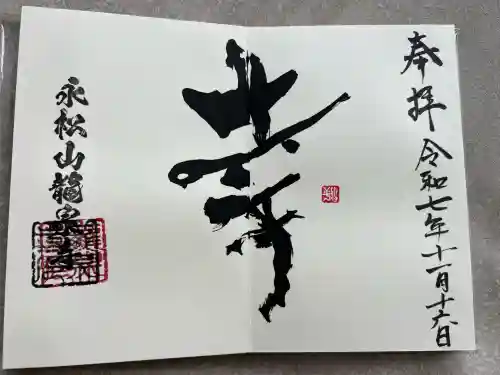 奉拝
令和七年十一月十六日
幸
永松山龍泉寺